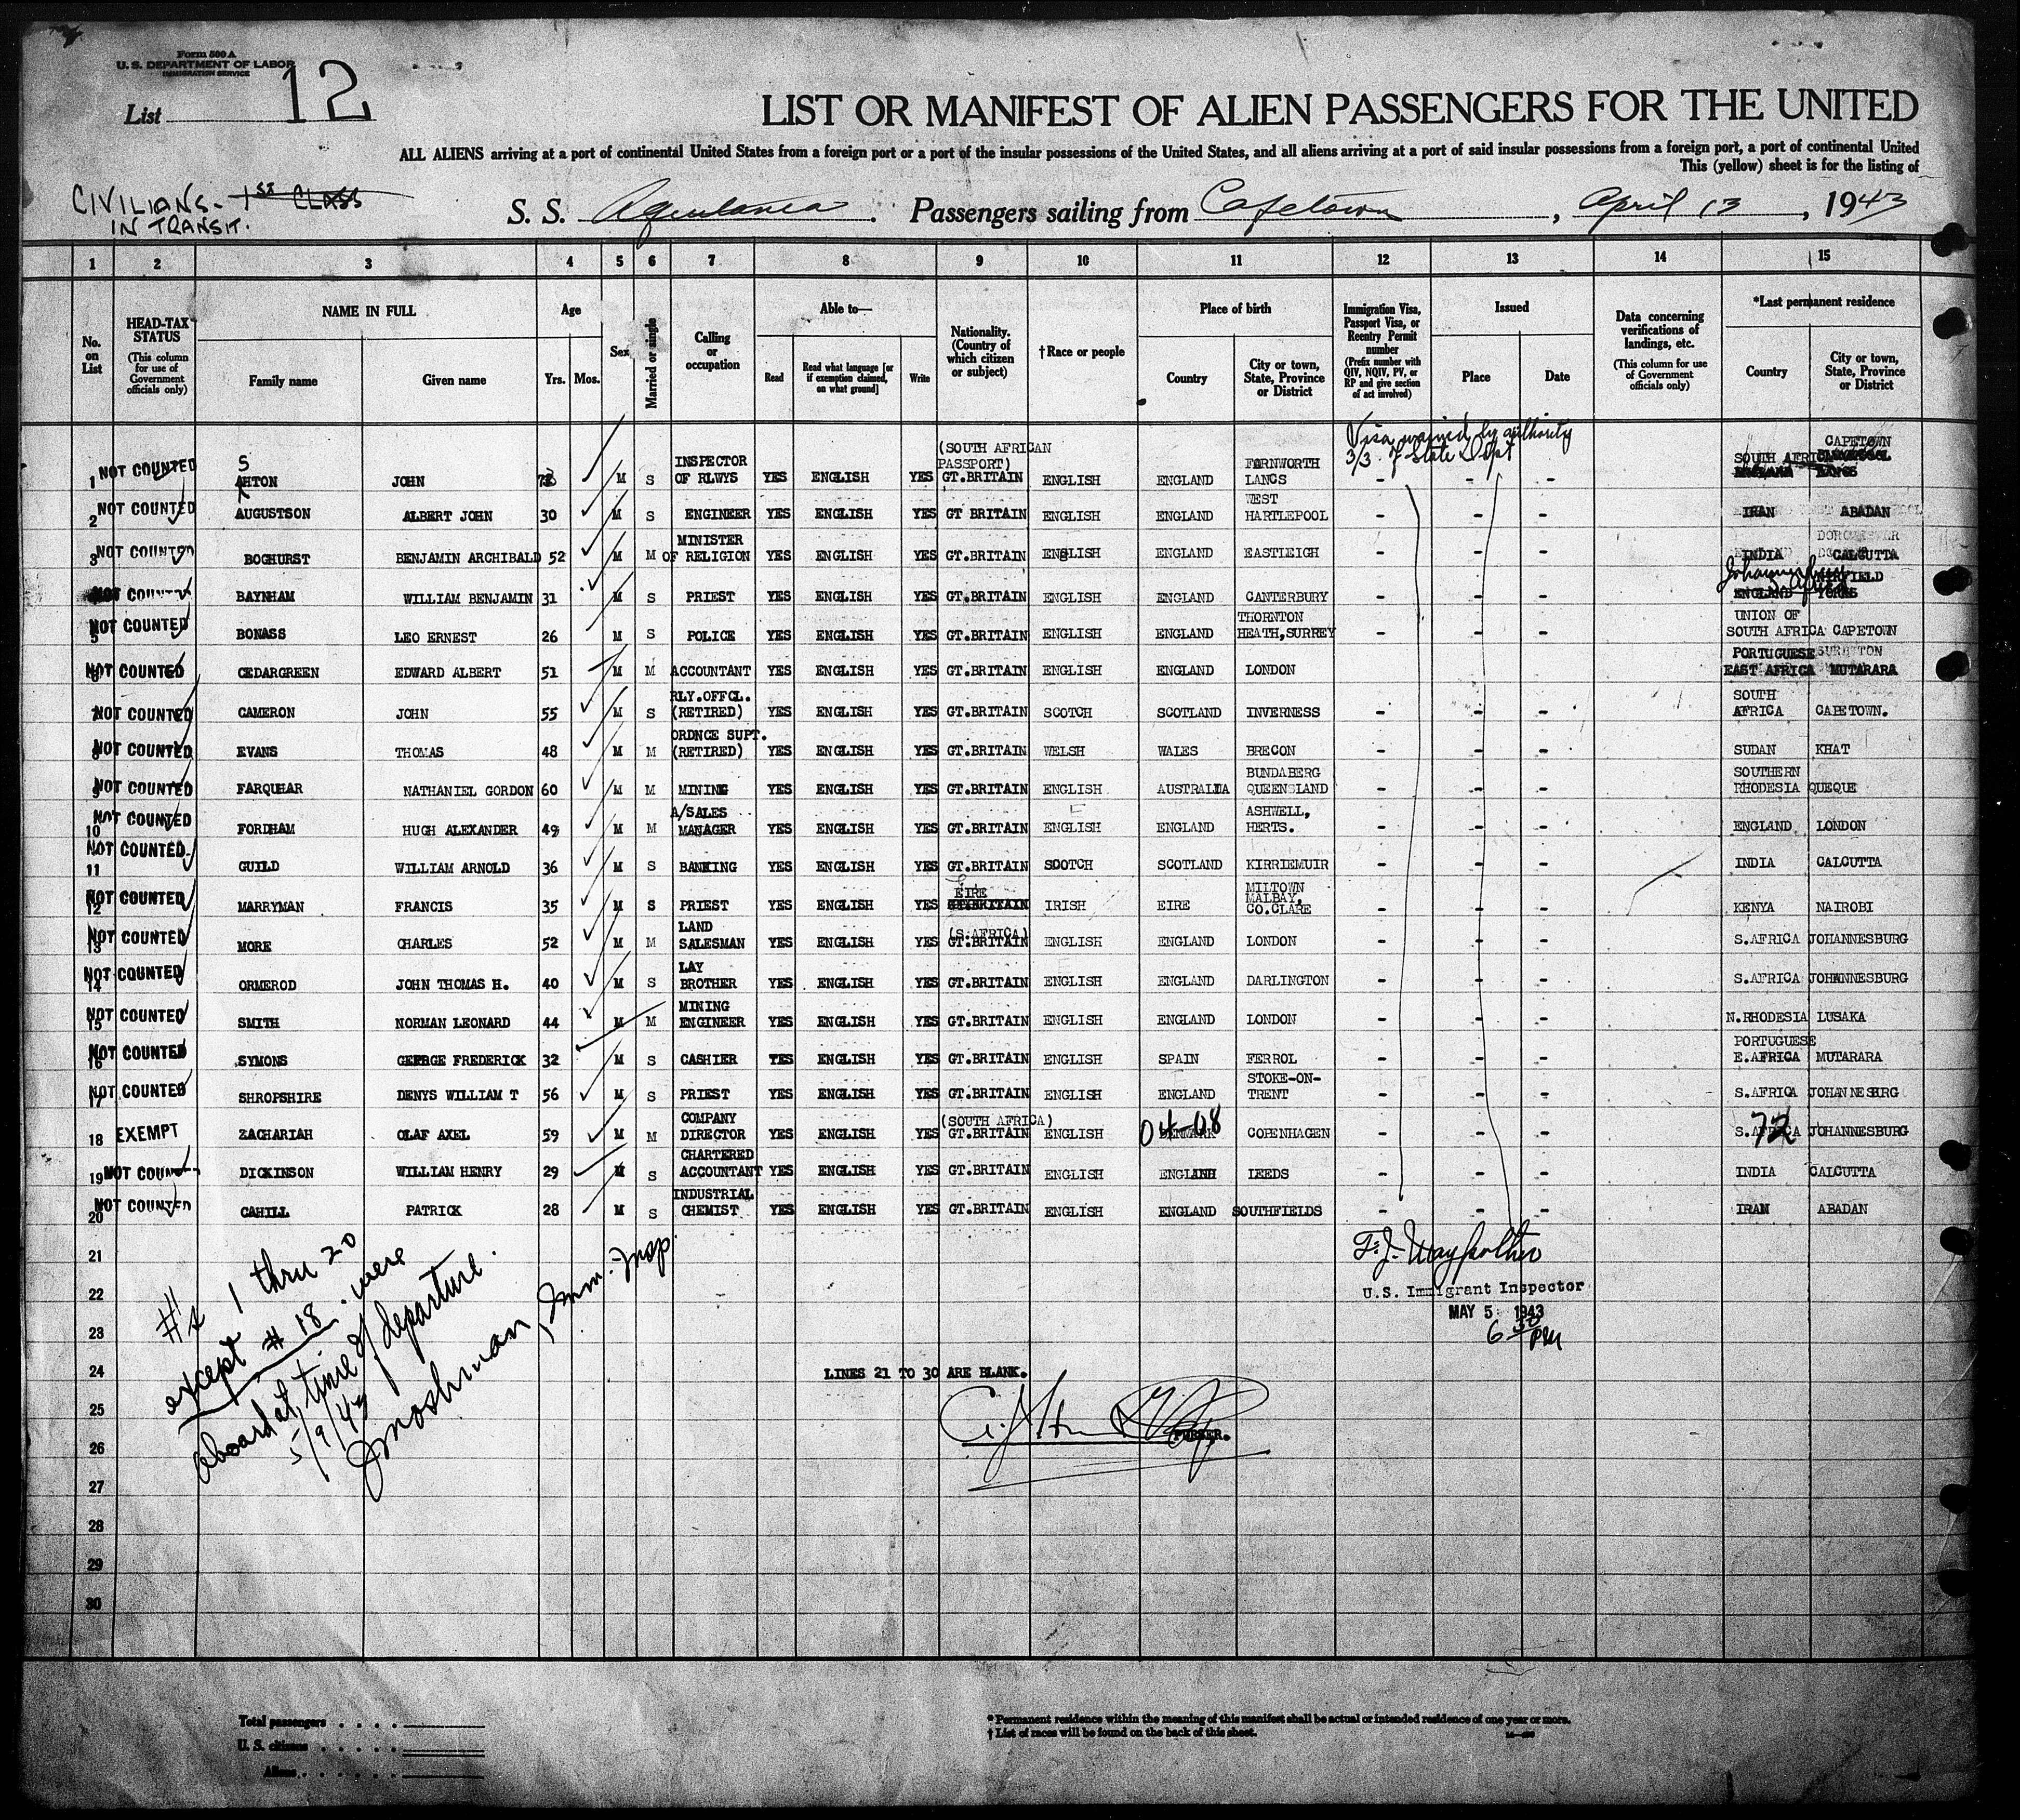 Form 500 A
U. S. DEPARTMENT OF LABOR
IMMIGRATION SERVICE
List 12
LIST OR MANIFEST OF ALIEN PASSENGERS FOR THE UNITED
ALL ALIENS arriving at a port of continental United States from a foreign port or a port of the insular possessions of the United States, and all aliens arriving at a port of said insular possessions from a foreign port, a port of continental United
This (yellow) sheet is for the listing of
CIVILIANS - 1ST CLASS
IN TRANSIT.
S. S. Aquitania. Passengers sailing from Capetown, April 13, 1943
1 2 3 4 5 6 7 8 9 10 11 12 13 14 15
No. on List
HEAD-TAX STATUS (This column for use of Government officials only)
NAME IN FULL Family name Given name
Age Yrs. Mos.
Sex
Married or single
Calling or occupation
Able to— Read Read what language [or if exemption claimed, on what ground] Write
Nationality. (Country of which citizen or subject)
† Race or people
Place of birth Country City or town, State, Province or District
Immigration Visa, Passport Visa, or Reentry Permit number (Prefix number with QIV, NQIV, PV, or RP and give section of act involved)
Issued Place Date
Data concerning verifications of landings, etc. (This column for use of Government officials only)
*Last permanent residence Country City or town, State, Province or District
Visa waived by authority
3/3. of State Dept
1 NOT COUNTED ASHTON JOHN M S INSPECTOR OF RLWYS YES ENGLISH YES (SOUTH AFRICAN PASSPORT) GT.BRITAIN ENGLISH ENGLAND FARNWORTH LANCS - - - SOUTH AFRICA CAPETOWN
2 NOT COUNTED AUGUSTSON ALBERT JOHN 30 M S ENGINEER YES ENGLISH YES GT BRITAIN ENGLISH ENGLAND WEST HARTLEPOOL - - - IRAN ABADAN
3 NOT COUNTED BOGHURST BENJAMIN ARCHIBALD 52 M M MINISTER OF RELIGION YES ENGLISH YES GT.BRITAIN ENGLISH ENGLAND EASTLEIGH - - - INDIA CALCUTTA
NOT COUNTED BAYNHAM WILLIAM BENJAMIN 31 M S PRIEST YES ENGLISH YES GT.BRITAIN ENGLISH ENGLAND CANTERBURY - - - Johannesburg S. Africa ENGLAND YORKS
5 NOT COUNTED BONASS LEO ERNEST 26 M S POLICE YES ENGLISH YES GT.BRITAIN ENGLISH ENGLAND THORNTON HEATH, SURREY - - - UNION OF SOUTH AFRICA CAPETOWN
6 NOT COUNTED CEDARGREEN EDWARD ALBERT 51 M M ACCOUNTANT YES ENGLISH YES GT.BRITAIN ENGLISH ENGLAND LONDON - - - PORTUGUESE EAST AFRICA MUTARARA
7 NOT COUNTED CAMERON JOHN 55 M S RLY.OFFCL. (RETIRED) YES ENGLISH YES GT.BRITAIN SCOTCH SCOTLAND INVERNESS - - - SOUTH AFRICA CAPETOWN.
8 NOT COUNTED EVANS THOMAS 48 M M ORDNCE SUPT. (RETIRED) YES ENGLISH YES GT.BRITAIN WELSH WALES BRECON - - - SUDAN KHAT
9 NOT COUNTED FARQUHAR NATHANIEL GORDON 60 M M MINING YES ENGLISH YES GT.BRITAIN ENGLISH AUSTRALIA BUNDABERG QUEENSLAND - - - SOUTHERN RHODESIA QUEQUE
10 NOT COUNTED FORDHAM HUGH ALEXANDER 49 M M A/SALES MANAGER YES ENGLISH YES GT.BRITAIN ENGLISH ENGLAND ASHWELL, HERTS. - - - ENGLAND LONDON
11 NOT COUNTED GUILD WILLIAM ARNOLD 36 M S BANKING YES ENGLISH YES GT.BRITAIN SCOTCH SCOTLAND KIRRIEMUIR - - - INDIA CALCUTTA
12 NOT COUNTED MARRYMAN FRANCIS 35 M S PRIEST YES ENGLISH YES EIRE GT.BRITAIN IRISH EIRE MILTOWN MALBAY, CO.CLARE - - - KENYA NAIROBI
13 NOT COUNTED MORE CHARLES 52 M M LAND SALESMAN YES ENGLISH YES (S.AFRICA) GT.BRITAIN ENGLISH ENGLAND LONDON - - - S.AFRICA JOHANNESBURG
14 NOT COUNTED ORMEROD JOHN THOMAS H. 40 M S LAY BROTHER YES ENGLISH YES GT.BRITAIN ENGLISH ENGLAND DARLINGTON - - - S.AFRICA JOHANNESBURG
15 NOT COUNTED SMITH NORMAN LEONARD 44 M M MINING ENGINEER YES ENGLISH YES GT.BRITAIN ENGLISH ENGLAND LONDON - - - N.RHODESIA LUSAKA
16 NOT COUNTED SYMONS GEORGE FREDERICK 32 M S CASHIER YES ENGLISH YES GT.BRITAIN ENGLISH SPAIN FERROL - - - PORTUGUESE E.AFRICA MUTARARA
17 NOT COUNTED SHROPSHIRE DENYS WILLIAM T 56 M S PRIEST YES ENGLISH YES GT.BRITAIN ENGLISH ENGLAND STOKE-ON-TRENT - - - S.AFRICA JOHANNESBRG
18 EXEMPT ZACHARIAH OLAF AXEL 59 M M COMPANY DIRECTOR YES ENGLISH YES (SOUTH AFRICA) GT.BRITAIN ENGLISH 04-08 DENMARK COPENHAGEN - - - 72 S.AFRICA JOHANNESBURG
19 NOT COUNTED DICKINSON WILLIAM HENRY 29 M S CHARTERED ACCOUNTANT YES ENGLISH YES GT.BRITAIN ENGLISH ENGLAND LEEDS - - - INDIA CALCUTTA
20 NOT COUNTED CAHILL PATRICK 28 M S INDUSTRIAL CHEMIST YES ENGLISH YES GT.BRITAIN ENGLISH ENGLAND SOUTHFIELDS - - - IRAN ABADAN
21
22
23
24
25
26
27
28
29
30
#'s 1 thru 20
except #18. were
aboard at time of departure.
5/9/43
J Moshman, Imm. Insp.
U.S. Immigrant Inspector
MAY 5 1943
6 30 PM
LINES 21 TO 30 ARE BLANK.
PURSER.
Total passengers . . . .
U. S. citizens . . . . .
Aliens . . . . . .
* Permanent residence within the meaning of this manifest shall be actual or intended residence of one year or more.
† List of races will be found on the back of this sheet.